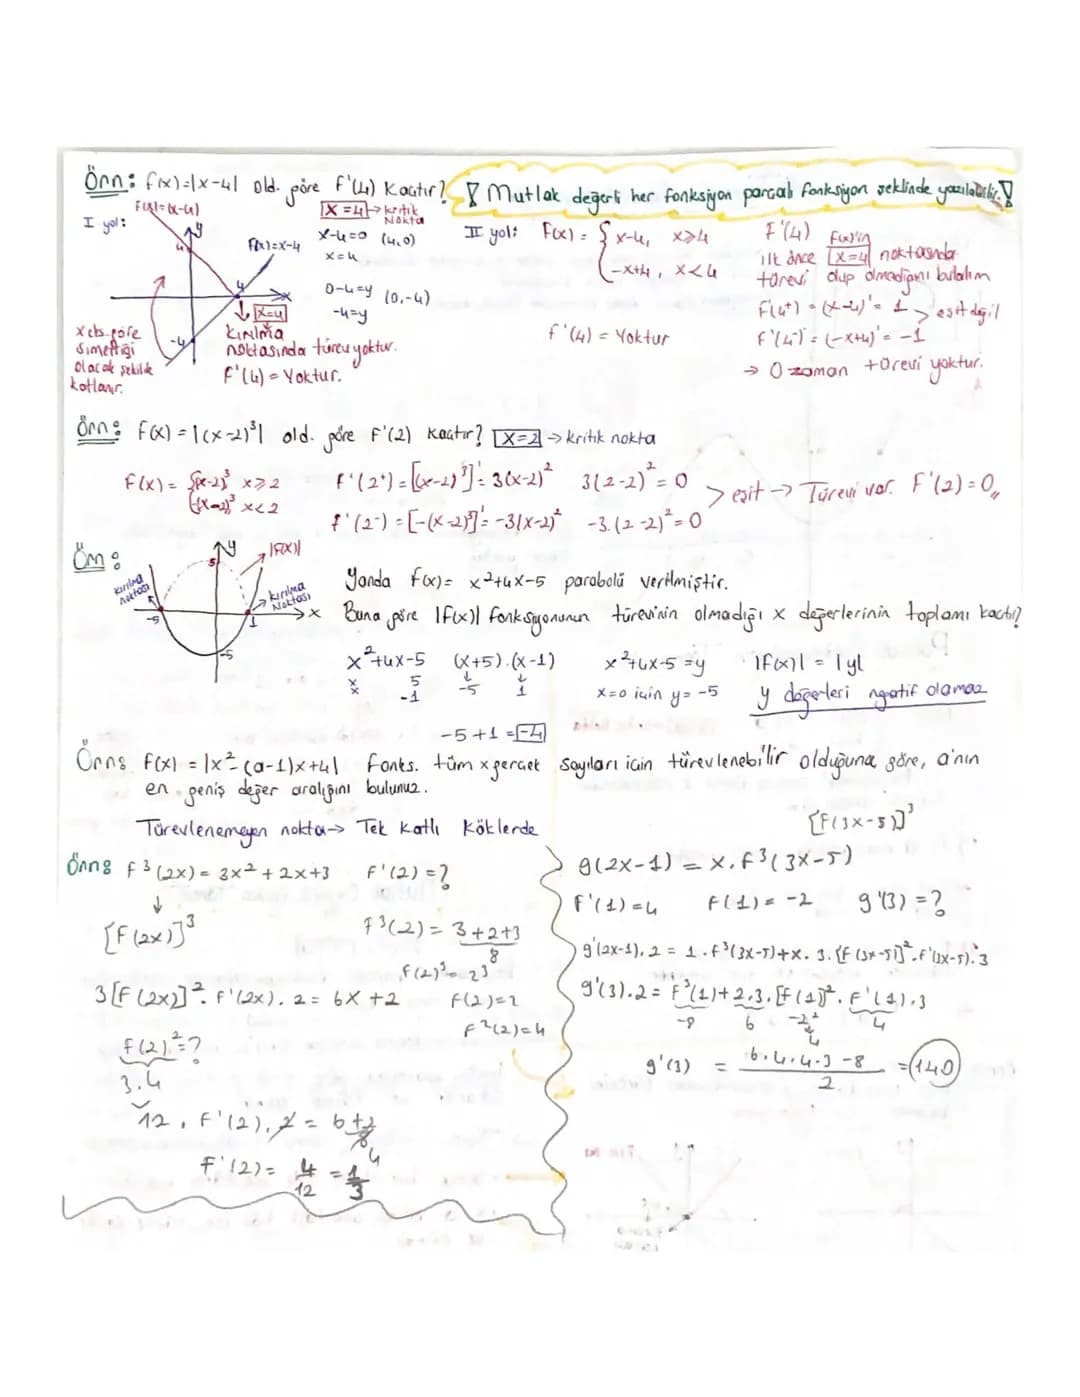 Örn: f(x)=|x-4| old. göre F'(4) Kaçtır?
! Mutlak değerli her fonksiyon parçalı fonksiyon şeklinde yazılabilir. !
I yol:
F(x)=|x-4|
y
4
F(x)=x-4
4
x
-4
x=4
Kırılma
noktasında türevi yoktur.
F'(4) = Yoktur.
x eks. göre
simetriği
olacak şekilde
katlanır.
x=4 → kritik Nokta
x-4=0 (4,0)
x=4
0-4=y (0,-4)
-4=y
II yol: F(x) = { x-4, x≥4
-x+4, x<4
f'(4) = Yoktur
F'(4) F(x)'in
ilk önce x=4 noktasında
türevi olup olmadığını bulalım
F'(4⁺) = (x-4)' = 1
> eşit değil
F'(4⁻) = (-x+4)' = -1
→ O zaman türevi yoktur.
Örn: F(x) = |(x-2)³| old. göre F'(2) kaçtır? x=2 → kritik nokta
F(x) = { (x-2)³ x≥2
-(x-2)³ x<2
F'(2⁺) = [(x-2)³]' = 3(x-2)² 3(2-2)² = 0
F'(2⁻) = [-(x-2)³]' = -3(x-2)² -3.(2-2)² = 0
> eşit → Türevi var. F'(2) = 0,,
Örn:
y
5
|F(x)|
kırılma noktası
kırılma Noktası
-5
1
x
-5
Yanda F(x) = x²+4x-5 parabolü verilmiştir.
Buna göre |F(x)| fonksiyonunun türevinin olmadığı x değerlerinin toplamı kaçtır?
x²+4x-5 (x+5).(x-1)
x 5 ↓ ↓
x -1 -5 1
-5+1 = -4
x²+4x-5 = y
x=0 için y = -5
|F(x)| = |y|
y değerleri negatif olamaz
Örn: F(x) = |x²-(a-1)x+4| fonks. tüm x gerçek sayıları için türevlenebilir olduğuna göre, a'nın
en geniş değer aralığını bulunuz.
Türevlenemeyen nokta → Tek katlı köklerde
Örn: F³(2x) = 3x²+2x+3 F'(2) = ?
↓
[F(2x)]³
F³(2) = 3+2+3
8
F(2)³ = 2³
3[F(2x)]². F'(2x). 2 = 6x+2
F(2)=2
F²(2)=4
F(2)² = ?
3.4
12. F'(2). 2 = 6+2
8
4
F'(2) = 4/12 = 1/3
[F(3x-5)]³
g(2x-1) = x. F³(3x-5)
F'(1)=4 F(1) = -2 g'(3) = ?
g'(2x-1). 2 = 1. F³(3x-5)+x. 3. [F(3x-5)]². F'(3x-5). 3
g'(3). 2 = F³(1)+2.3. [F(1)]². F'(1). 3
-8 6 -2² 4
4
g'(3) = 6.4.4.3-8 / 2 = 140